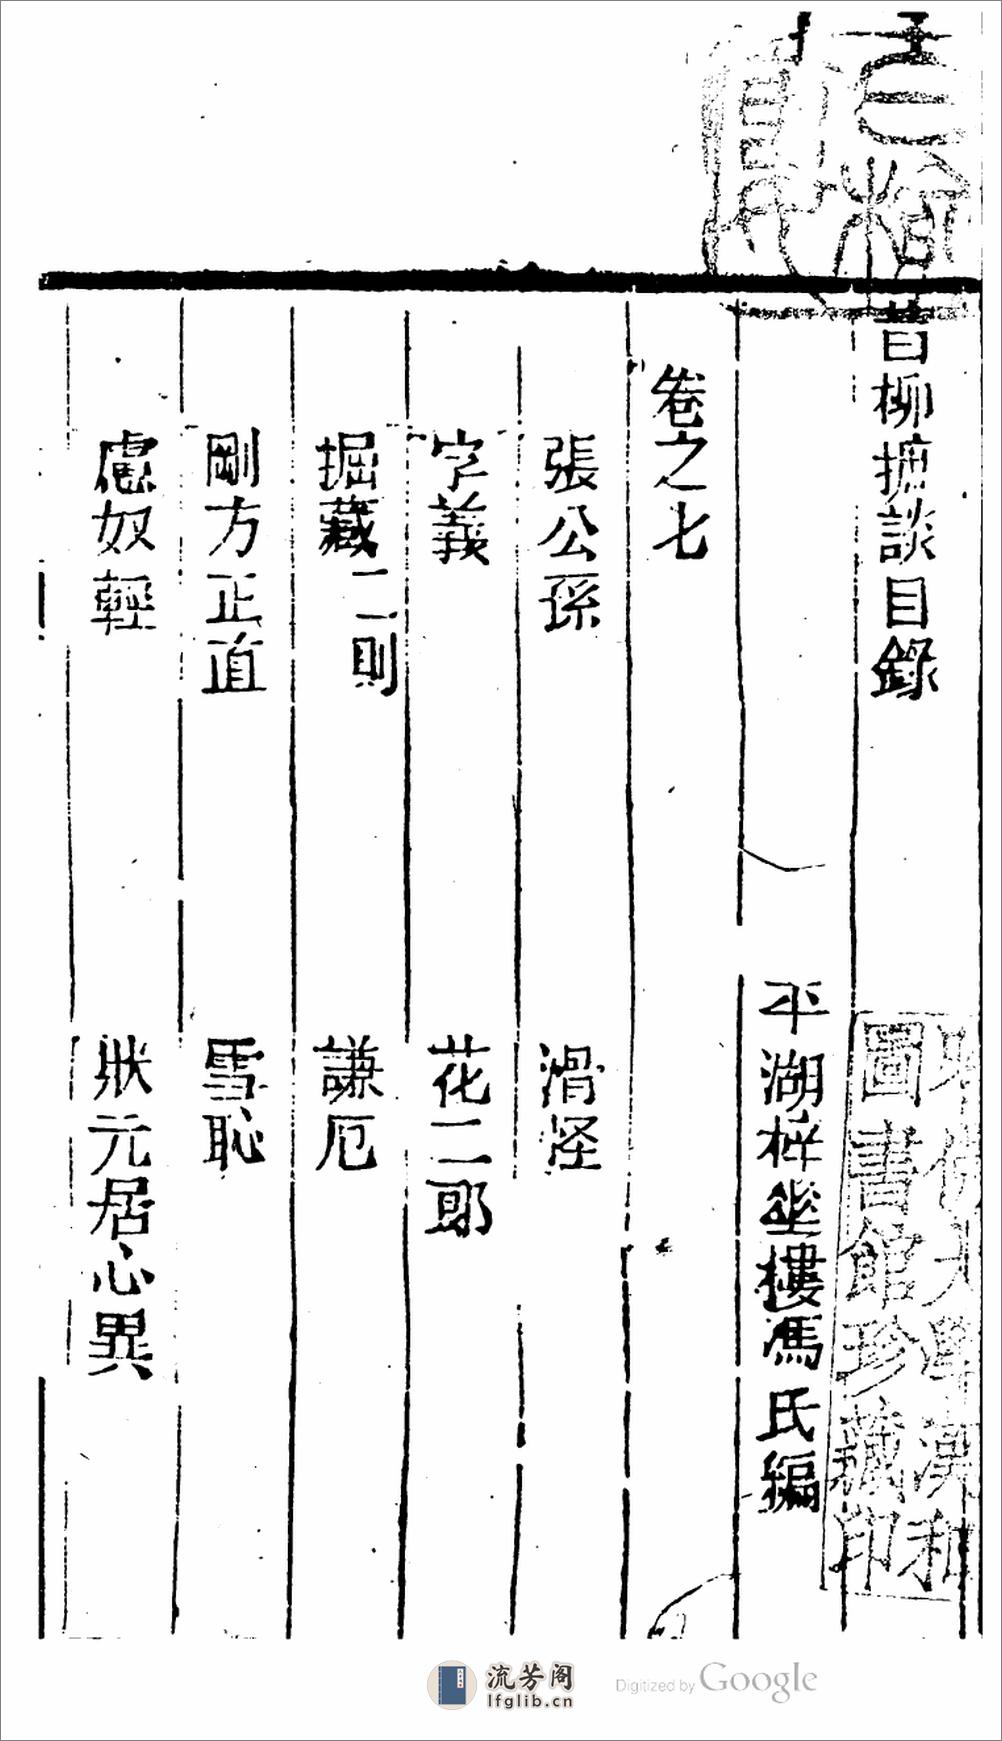 昔柳摭談目錄
平湖梓華樓馮氏編
卷之七
張公孫 滑稽
字義 花二郎
掘藏二則 謙厄
剛方正直 雪恥
慮奴輕 狀元居心異
哈佛大學漢和
圖書館珍藏印
流芳阁
lfglib.cn
Digitized by Google